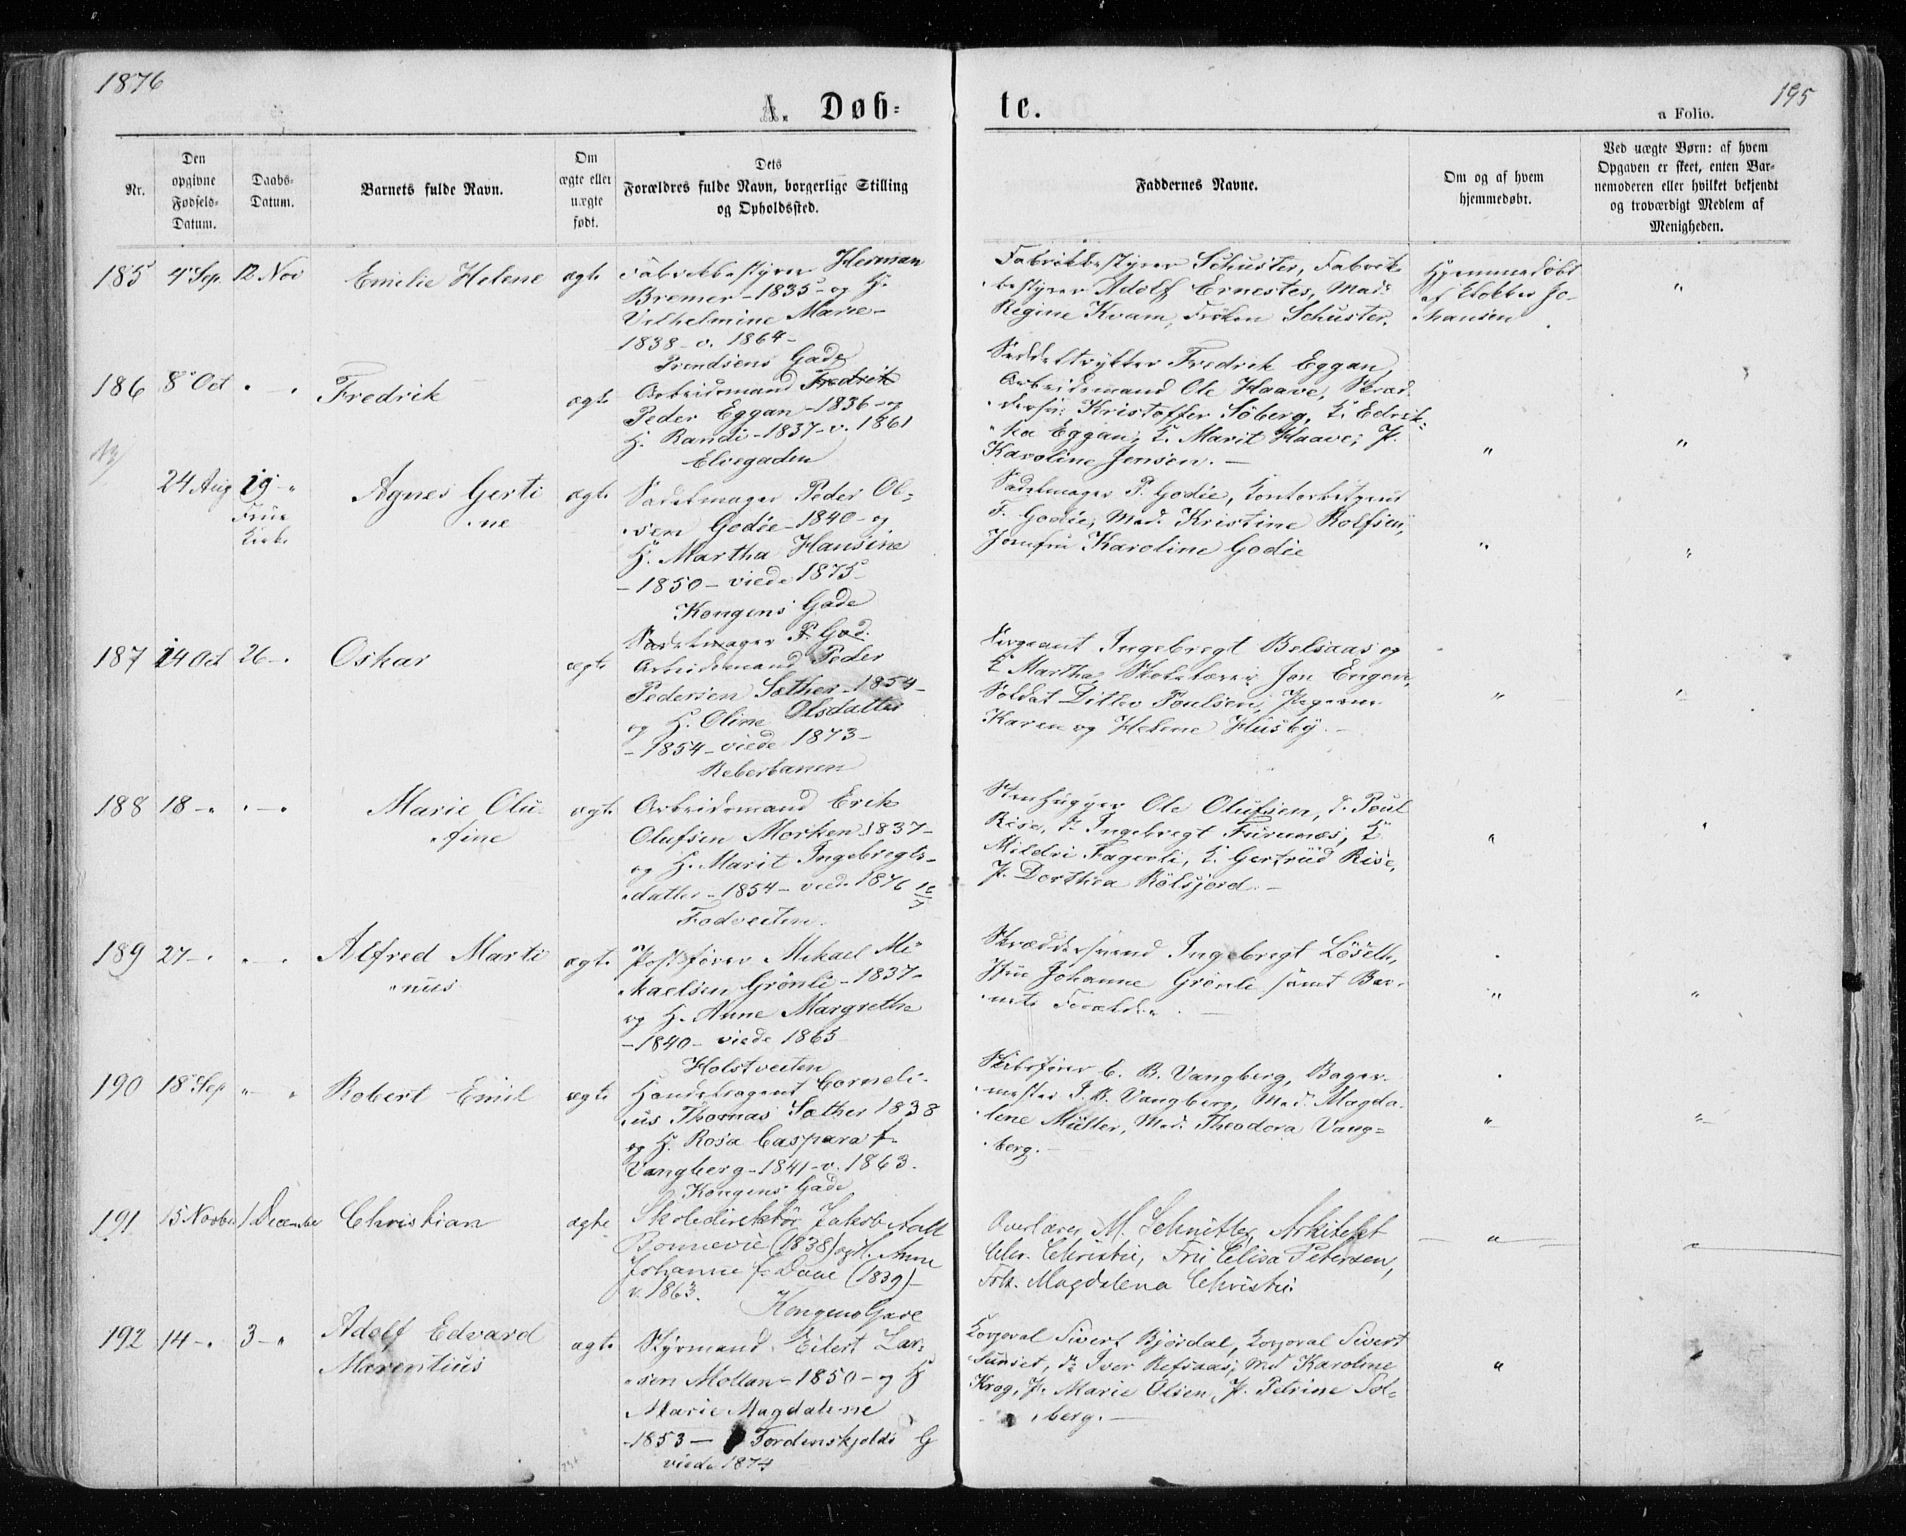 1876
195
A. Døb-
te.
a Folio.
Nr.
Den
opgivne
Fødsels-
Datum.
Daabs-
Datum.
Barnets fulde Navn.
Om
ægte eller
uægte
født.
Dets
Forældres fulde Navn, borgerlige Stilling
og Opholdssted.
Faddernes Navne.
Om og af hvem
hjemmedøbt.
Ved uægte Børn: af hvem
Opgaven er skeet, enten Bar-
nemoderen eller hvilket bekjendt
og troværdigt Medlem af
Menigheden.
185 4 Sep. 12 Nov Emilie Helene ægte
Fabrikbestyrer Herman
Bremer - 1835 - og H.
Vilhelmine Marie -
1838 - v. 1864 -
Fabrikbestyrer Schuster, Fabrik-
bestyrer Adolf Ernestes, Mad.
Regine Kvam, Frøken Schuster.
Hjemmedøbt
af Klokker Jo-
hansen
"
186 8 Oct " - " Fredrik ægte
Gade
Arbeidsmand Fredrik
Peder Eggan - 1836 - og
H. Randi - 1837 - v. 1861
Elvegaden
Fredrik Eggan,
Arbeidsmand Ole Haave, Skræd-
dersv. Kristoffer Söberg, K. Edrik-
ka Eggan, K. Marit Haave, P.
Karoline Jensen. -
" "
24 Aug 19 - "
Frue
Kirke
Agnes Gerti
ne
ægte
Sadelmager Peder Ol-
sen Godöe - 1840 - og
H. Martha Hansine
- 1850 - viede 1875 -
Kongens Gade
Sadelmager P. Godöe, Kontorbetjent
F. Godöe, Mad. Kristine Rolfsen,
Jomfru Karoline Godöe
" "
187 14 Oct 26 - " Oskar ægte
Sadelmager P. God.
Arbeidsmand Peder
Pedersen Sæther - 1854 -
og H. Oline Olsdatter
- 1854 - viede 1873 -
Reberbanen
Sergeant Ingebregt Belsaas og
K. Martha, Skolelærer Jon Engen,
Soldat Ditlev Poulsen, Pigerne
Karen og Helene Husby. -
" "
188 18 - " " - " Marie Olu
fine
ægte
Arbeidsmand Erik
Olufsen Morken 1837 -
og H. Marit Ingebregts-
datter - 1854 - vied. 1876
Fodveiten.
Stenhugger Ole Olufsen, do Poul
Rise, do Ingebregt Furunes, K.
Mildri Fagerli, K. Gertrud Rise,
P. Dorthea Kölsjord. -
" "
189 27 - " " - " Alfred Marti
nus
ægte
Postfører Mikael Mi
kaelsen Grönli - 1837 -
og H. Anne Margrethe
- 1840 - viede 1865
Holstveiten
Skræddersvend Ingebregt Löseth,
Johanne Grönli samt Bar-
nets Forældre. -
" "
190 18 Sep " - " Robert Emil ægte
Handelsagent Corneli-
us Thomas Sæther 1838
og H. Rosa Caspara f.
Vangberg - 1841 - v. 1863.
Kongens Gade
Skibsfører C. B. Vangberg, Bager-
mester J. B. Vangberg, Mad. Magda-
lene Müller, Mad. Theodora Vang-
berg. -
" "
191 15 Novbr 1 December Christian ægte
Skoledirektör Jakob Aall
Bonnevie (1838) og H. Anne
Johanne f. Daae (1839) -
v. 1863.
Kongens Gade
Overlærer M. Schnitler, Arkitekt
Chr. Christie, Fru Elisa Petersen,
Frk. Magdalena Christie.
" "
192 14 - " 3 - " Adolf Edvard
Marentius
ægte
Styrmand Eilert Lar-
sen Mollan - 1850 - og H
Marie Magdalene
1853 - Tordenskjolds G
viede 1874
Korporal Sivert Björdal, Korporal Sivert
Sunset, do Iver Refsaas, Mad Karoline
Krog, P. Marie Olsen, P. Petrine Sol-
berg. -
"